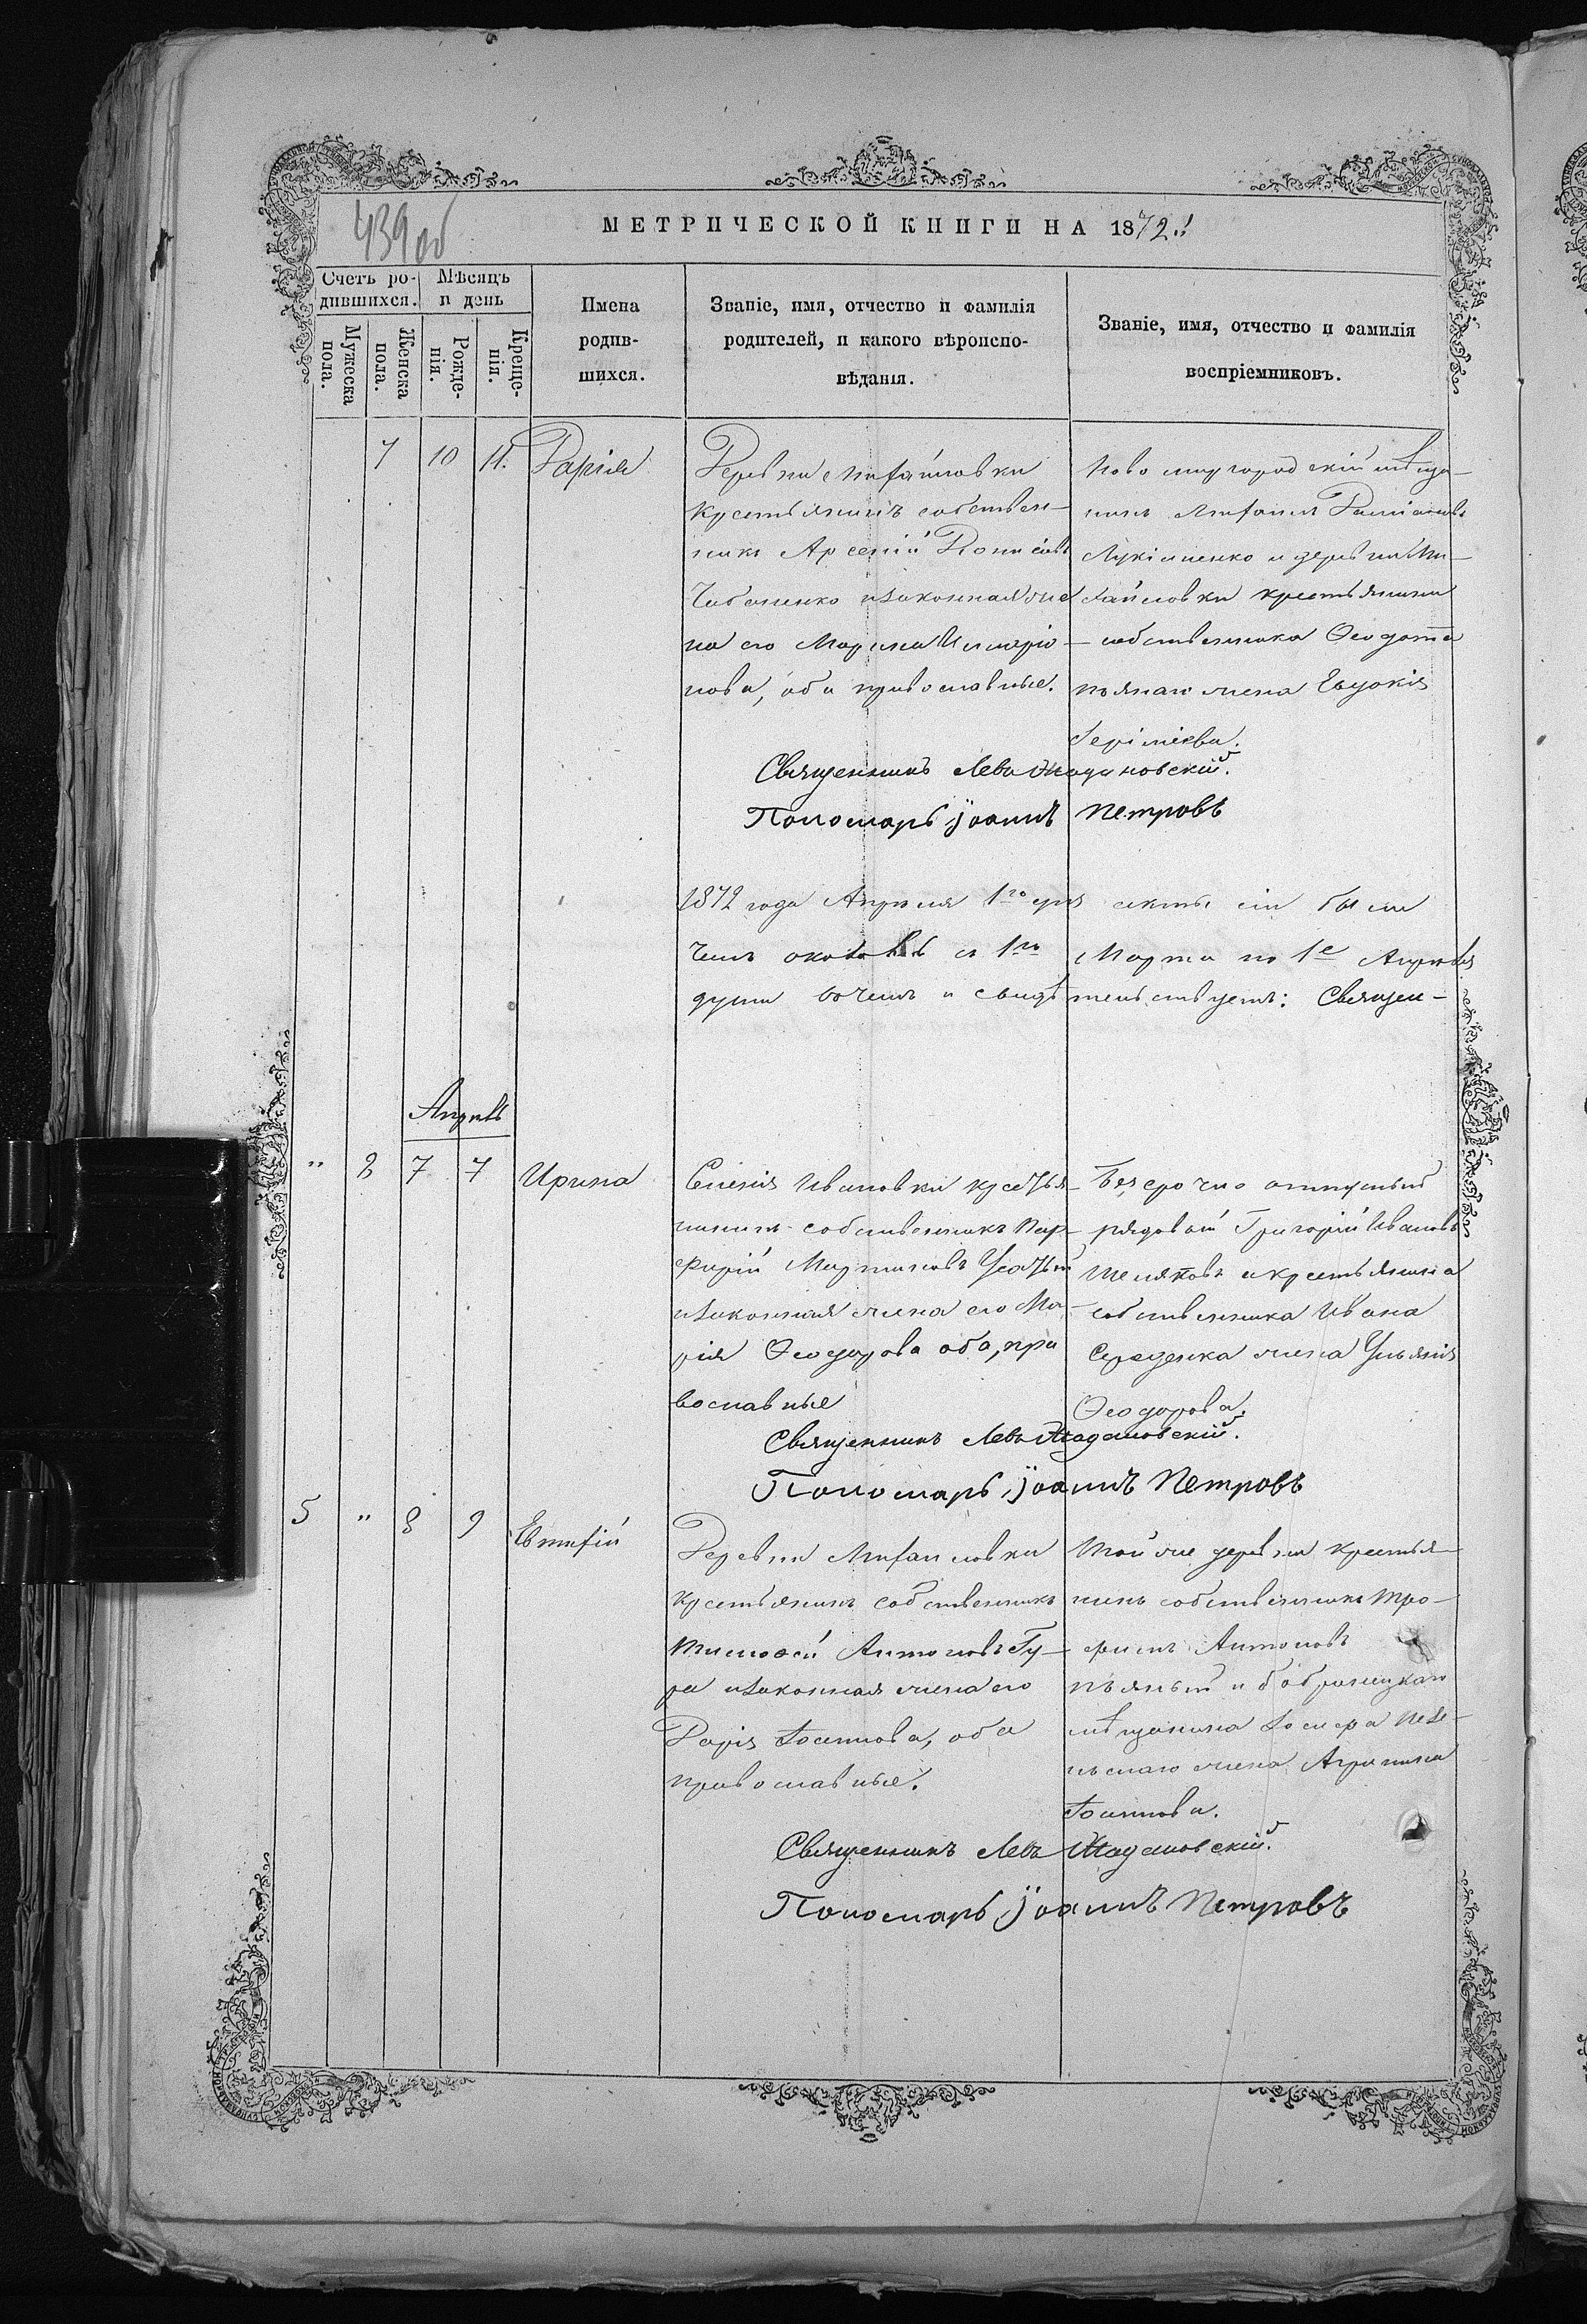 439 об
МЕТРИЧЕСКОЙ КНИГИ НА 1872.
Счетъ ро-
дившихся.
Мѣсяцъ
и день
Мужеска
пола.
Женска
пола.
Рожде-
нія.
Креще-
нія.
Имена
родив-
шихся.
Званіе, имя, отчество и фамилія
родителей, и какого вѣроиспо-
вѣданія.
Званіе, имя, отчество и фамилія
воспріемниковъ.
7 10 11. Дарія
Деревни Михайловки
крестьянинъ собствен-
никъ Арсеній Діонисіевъ
Чабаненко и законная же
на его Марина Иларіо
нова, оба православные.
Ново миргородскій мѣща-
нинъ Михаилъ Даміановъ
Лукіяненко и деревни Ми-
хайловки крестьянина
собственника Ѳеодота
пьянаго жена Евдокія
Священникъ Левъ Жадановскій.
Пономарь Іоаннъ Петровъ
1872 года Апрѣля 1го дня акты сіи были
съ 1го Марта по 1е Апрѣля
въ чемъ и свидѣтельствуетъ: Священ-
Апрѣль
" 8 7 7 Ирина
Селенія Ивановки крестья-
нинъ собственникъ Пор-
фирій Мартиновъ Усатый
и законная жена его Ма-
рія Ѳеодорова оба, пра
вославные
Безсрочно отпускный
рядовой Григорій Ивановъ
Шеляковъ и крестьянина
собственника Ивана
Середенка жена Ульянія
Ѳеодорова.
Священникъ Левъ Жадановскій.
Пономарь Іоаннъ Петровъ
5 " 8 9 Евтихій
Деревни Михайловки
крестьянинъ собственникъ
Тимоѳей Антоновъ Гу-
ра и законная жена его
Дарія Іоаннова, оба
православные.
Той же деревни крестья-
нинъ собственникъ Тро-
фимъ Антоновъ
пьяный и бобринецкаго
мѣщанина
жена Агрипина
Іоаннова.
Священникъ Левъ Жадановскій.
Пономарь Іоаннъ Петровъ